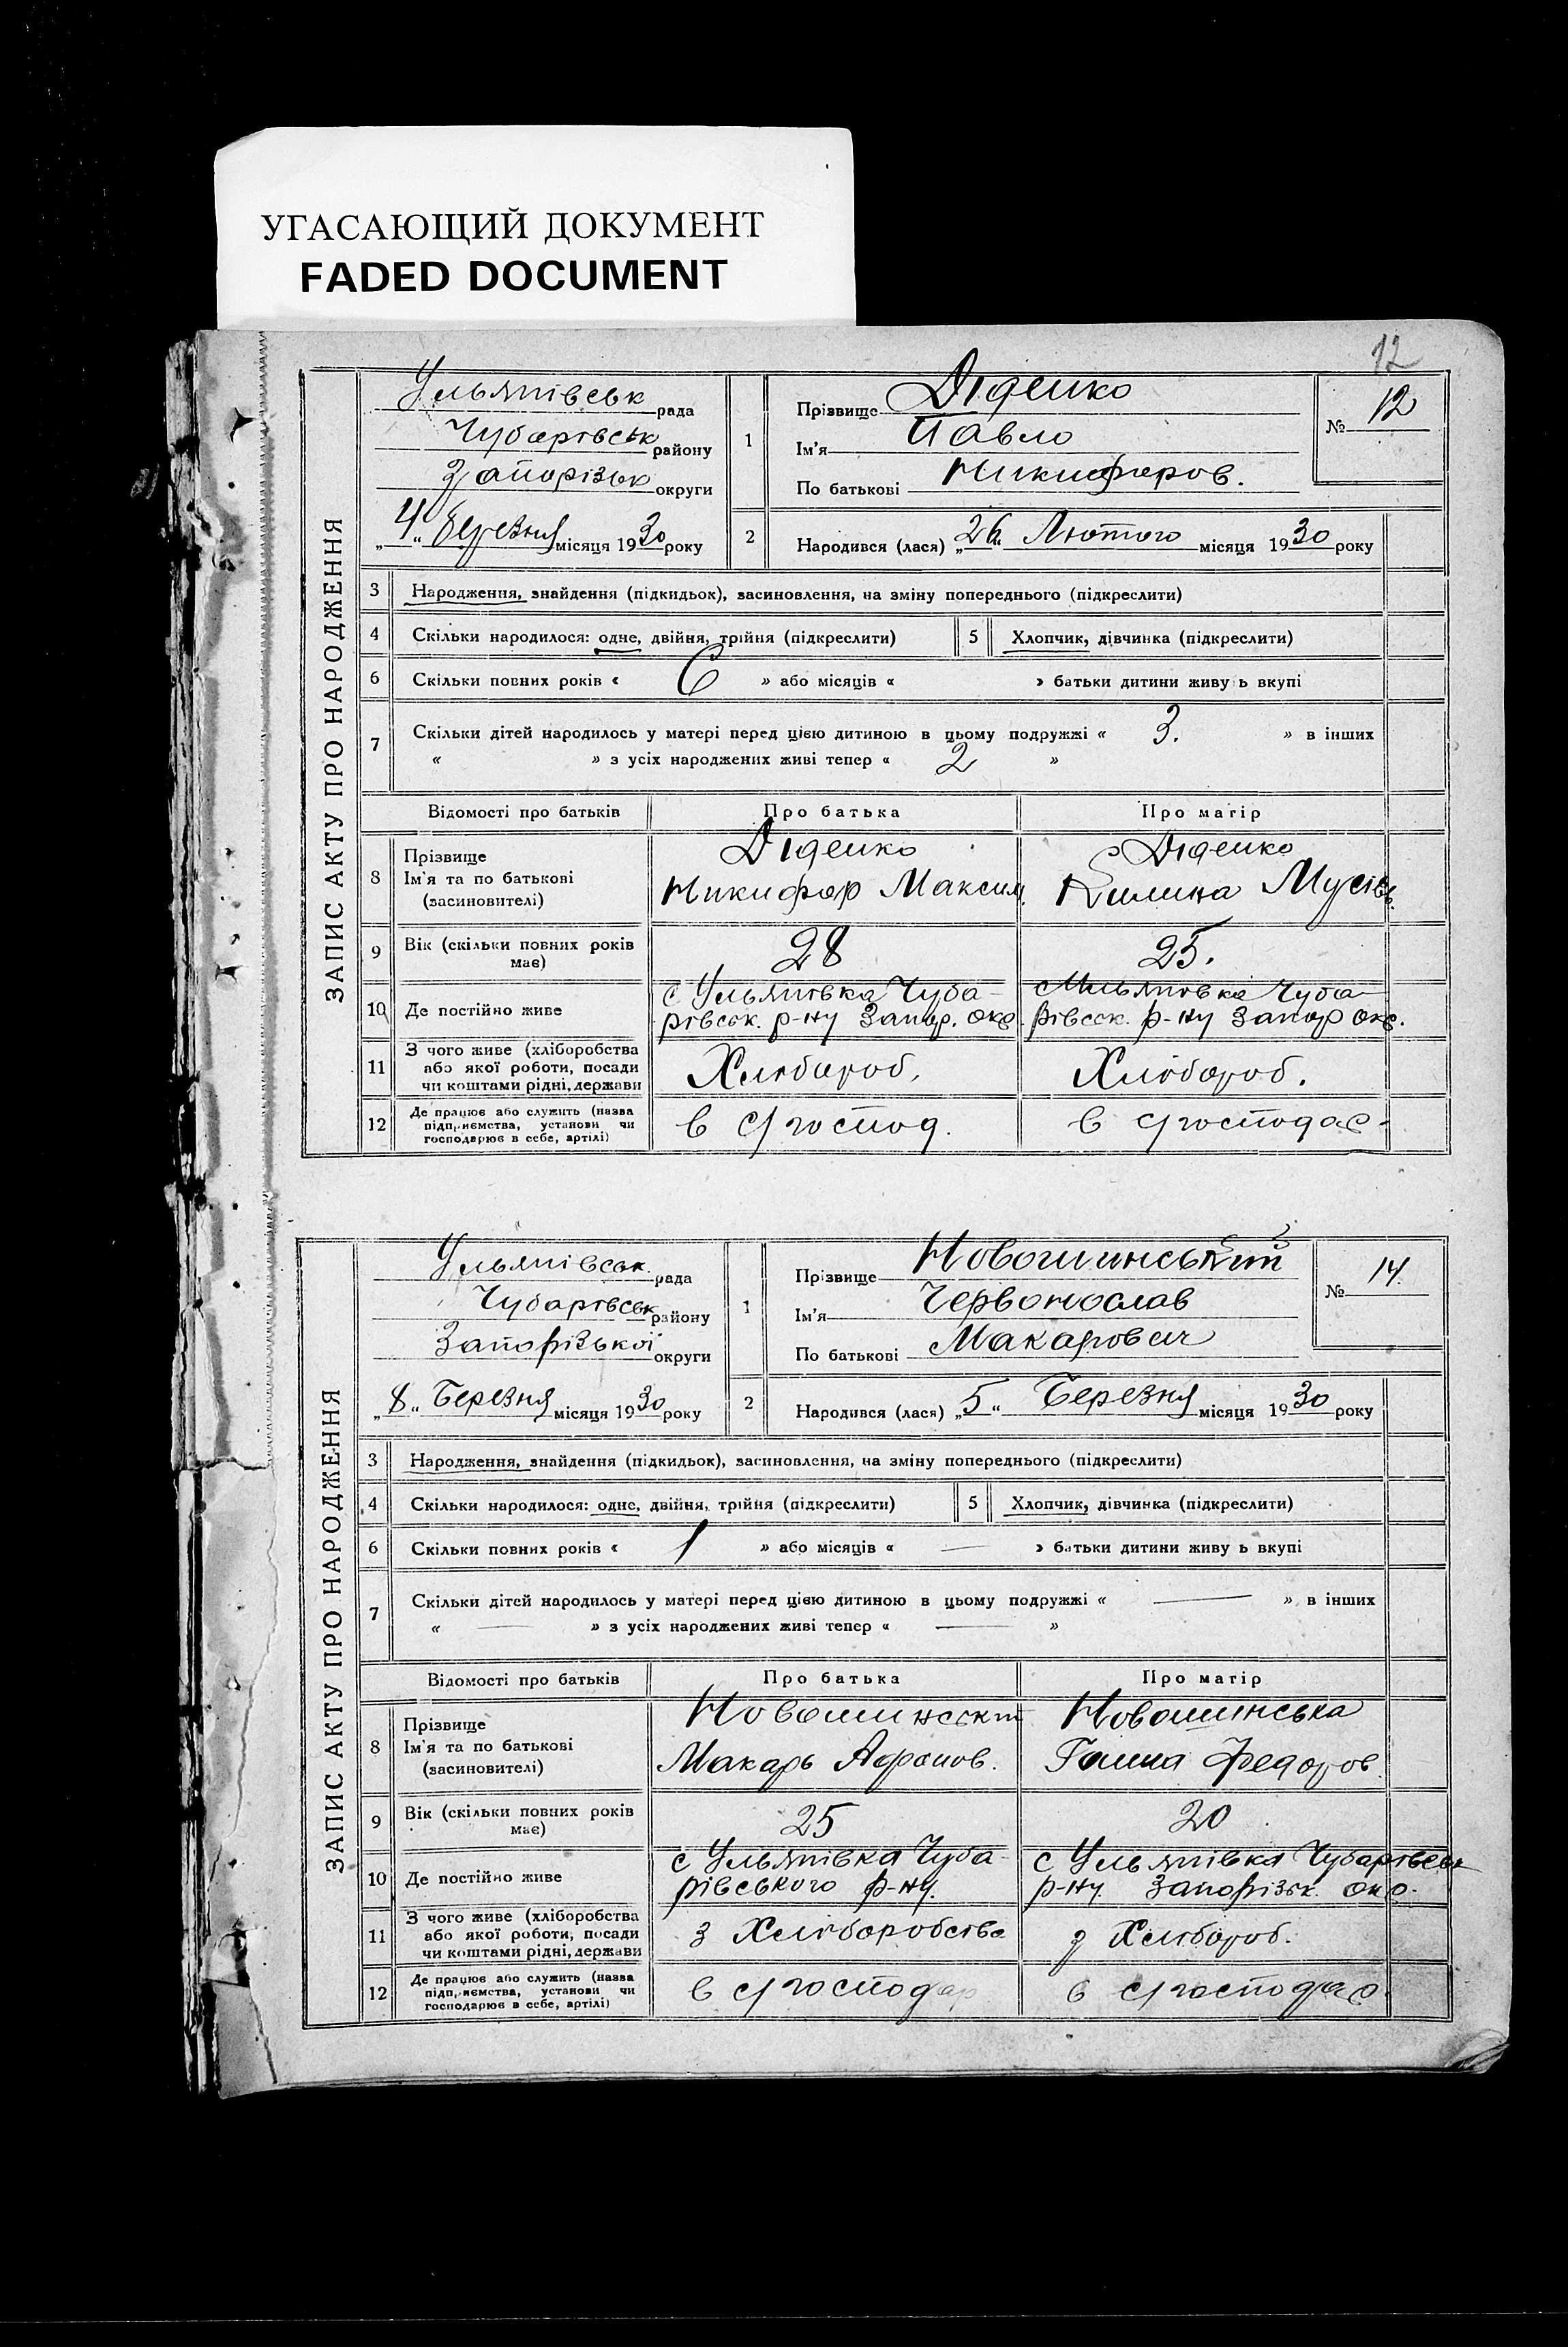 УГАСАЮЩИЙ ДОКУМЕНТ
FADED DOCUMENT
12
ЗАПИС АКТУ ПРО НАРОДЖЕННЯ
Улья­нівськ рада
Чубарівськ району
Запорізьк округи
„4“ березня місяця 1930 року
1
Прізвище Діденко
Ім'я Павло
По батькові Никифоров.
№ 12
2
Народився (лася) „26“ Лютого місяця 1930 року
3 Народження, знайдення (підкидьок), засиновлення, на зміну попереднього (підкреслити)
4 Скільки народилося: одне, двійня, трійня (підкреслити) 5 Хлопчик, дівчинка (підкреслити)
6 Скільки повних років « 6 » або місяців « » батьки дитини живу ь вкупі
7 Скільки дітей народилось у матері перед цією дитиною в цьому подружжі « 3. » в інших
« » з усіх народжених живі тепер « 2 »
Відомості про батьків Про батька Про матір
8 Прізвище
Ім'я та по батькові
(засиновителі)
Діденко
Никифор Максим.
Діденко
Килина Мусіев.
9 Вік (скільки повних років
має)
28
25.
10 Де постійно живе
с Ульянівка Чуба-
рівськ. р-ну Запор. окр.
с Ульянівка Чуба-
рівськ. р-ну Запор окр.
11 З чого живе (хліборобства
або якої роботи, посади
чи коштами рідні, держави
Хлібороб.
Хлібороб.
12 Де працює або служить (назва
підприємства, установи чи
господарює в себе, артілі)
в с/господ.
в с/господар.
ЗАПИС АКТУ ПРО НАРОДЖЕННЯ
Ульянівськ. рада
Чубарівськ району
Запорізької округи
„8“ Березня місяця 1930 року
1
Прізвище Новошинський
Ім'я Червонослав
По батькові Макарович
№ 14.
2
Народився (лася) „5“ Березня місяця 1930 року
3 Народження, знайдення (підкидьок), засиновлення, на зміну попереднього (підкреслити)
4 Скільки народилося: одне, двійня, трійня (підкреслити) 5 Хлопчик, дівчинка (підкреслити)
6 Скільки повних років « 1 » або місяців « — » батьки дитини живу ь вкупі
7 Скільки дітей народилось у матері перед цією дитиною в цьому подружжі « — » в інших
« — » з усіх народжених живі тепер « — »
Відомості про батьків Про батька Про матір
8 Прізвище
Ім'я та по батькові
(засиновителі)
Новошинський
Макарь
Новошинська
Ганна Федоров.
9 Вік (скільки повних років
має)
25
20
10 Де постійно живе
с Ульянівка Чуба-
рівського р-ну.
с Ульянівка Чубарівськ
р-ну. Запорізьк. окр.
11 З чого живе (хліборобства
або якої роботи, посади
чи коштами рідні, держави
З Хліборобства
З Хлібороб.
12 Де працює або служить (назва
підприємства, установи чи
господарює в себе, артілі)
в с/господар
в с/господар.